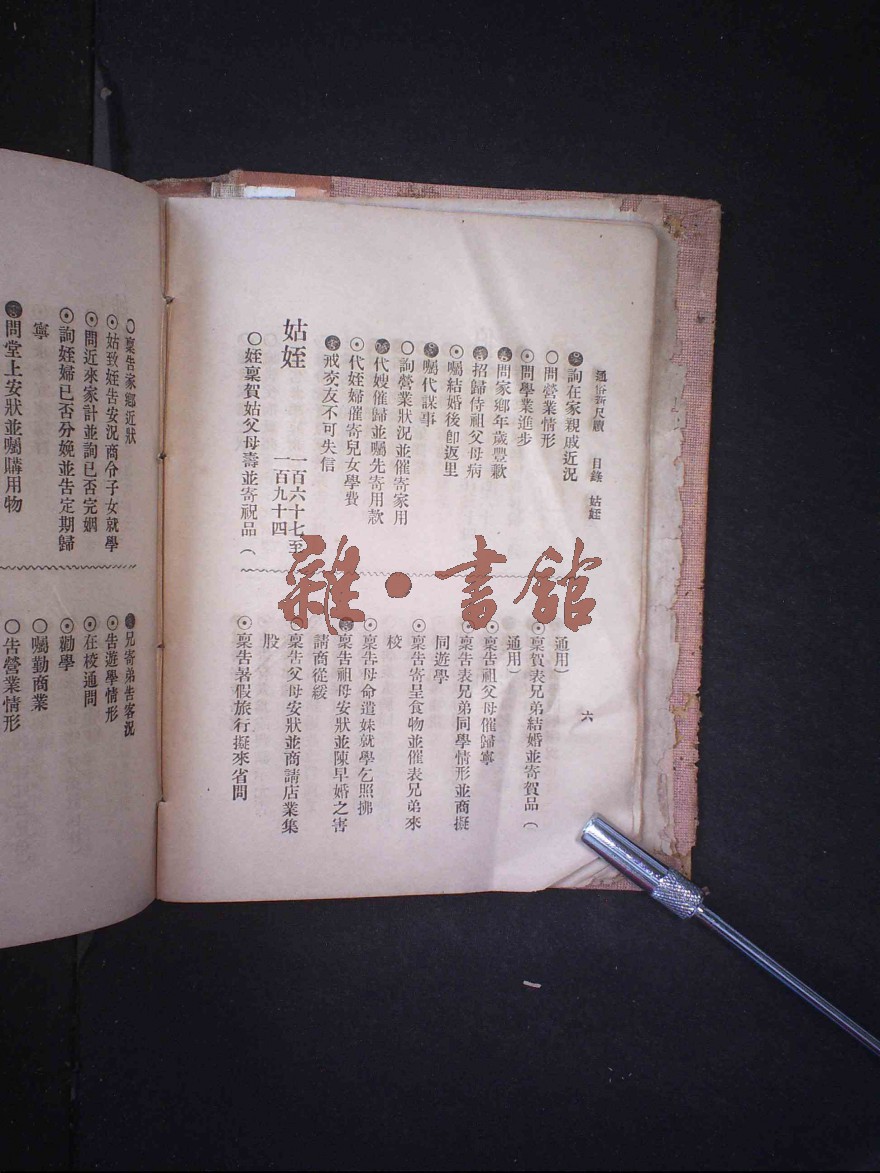 通俗新尺牘　目錄　姑姪
六
詢在家親戚近況
○問營業情形
⊙問學業進步
問家鄉年歲豐歉
招歸侍祖父母病
⊙囑結婚後卽返里
囑代謀事
○詢營業狀況並催寄家用
代嫂催歸並囑先寄用款
⊙代姪婦催寄兒女學費
戒交友不可失信
姑姪　一百六十七至
一百九十四
○姪稟賀姑父母壽並寄祝品（
通用）
⊙稟賀表兄弟結婚並寄賀品（
通用）
⊙稟告祖父母催歸寧
⊙稟告表兄弟同學情形並商擬
同遊學
○稟告寄呈食物並催表兄弟來
校
⊙稟告母命遣妹就學乞照拂
稟告祖母安狀並陳早婚之害
請商從緩
⊙稟告父母安狀並商請店業集
股
⊙稟告暑假旅行擬來省問
○稟告家鄉近狀
⊙姑致姪告安況商令子女就學
⊙問近來家計並詢已否完姻
⊙詢姪婦已否分娩並告定期歸
寧
問堂上安狀並囑購用物
兄寄弟告客況
⊙告遊學情形
⊙在校通問
⊙勸學
○囑勤商業
○告營業情形
雜·書館